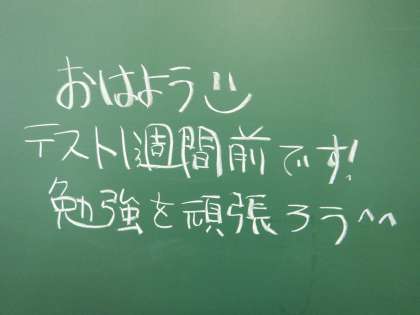 おはよう:)
テスト1週間前です!
勉強を頑張ろう^^